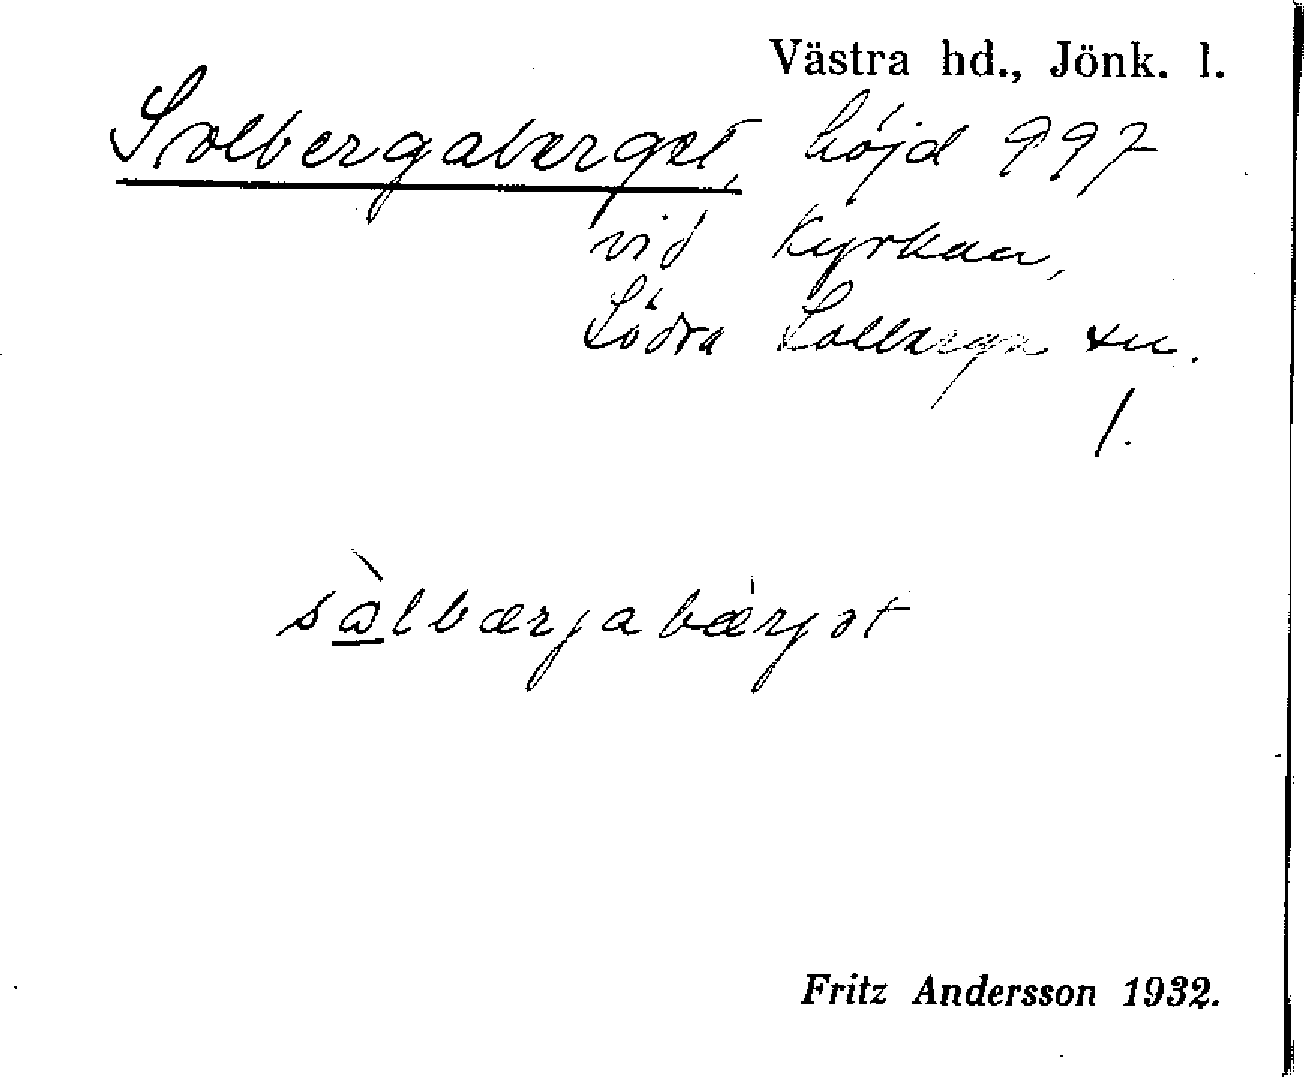 Västra hd., Jönk. l.
Solbergaberget, höjd 997
vid Kyrkan,
Södra Solberga sn.
1.
sòlbærjabærjət
Fritz Andersson 1932.